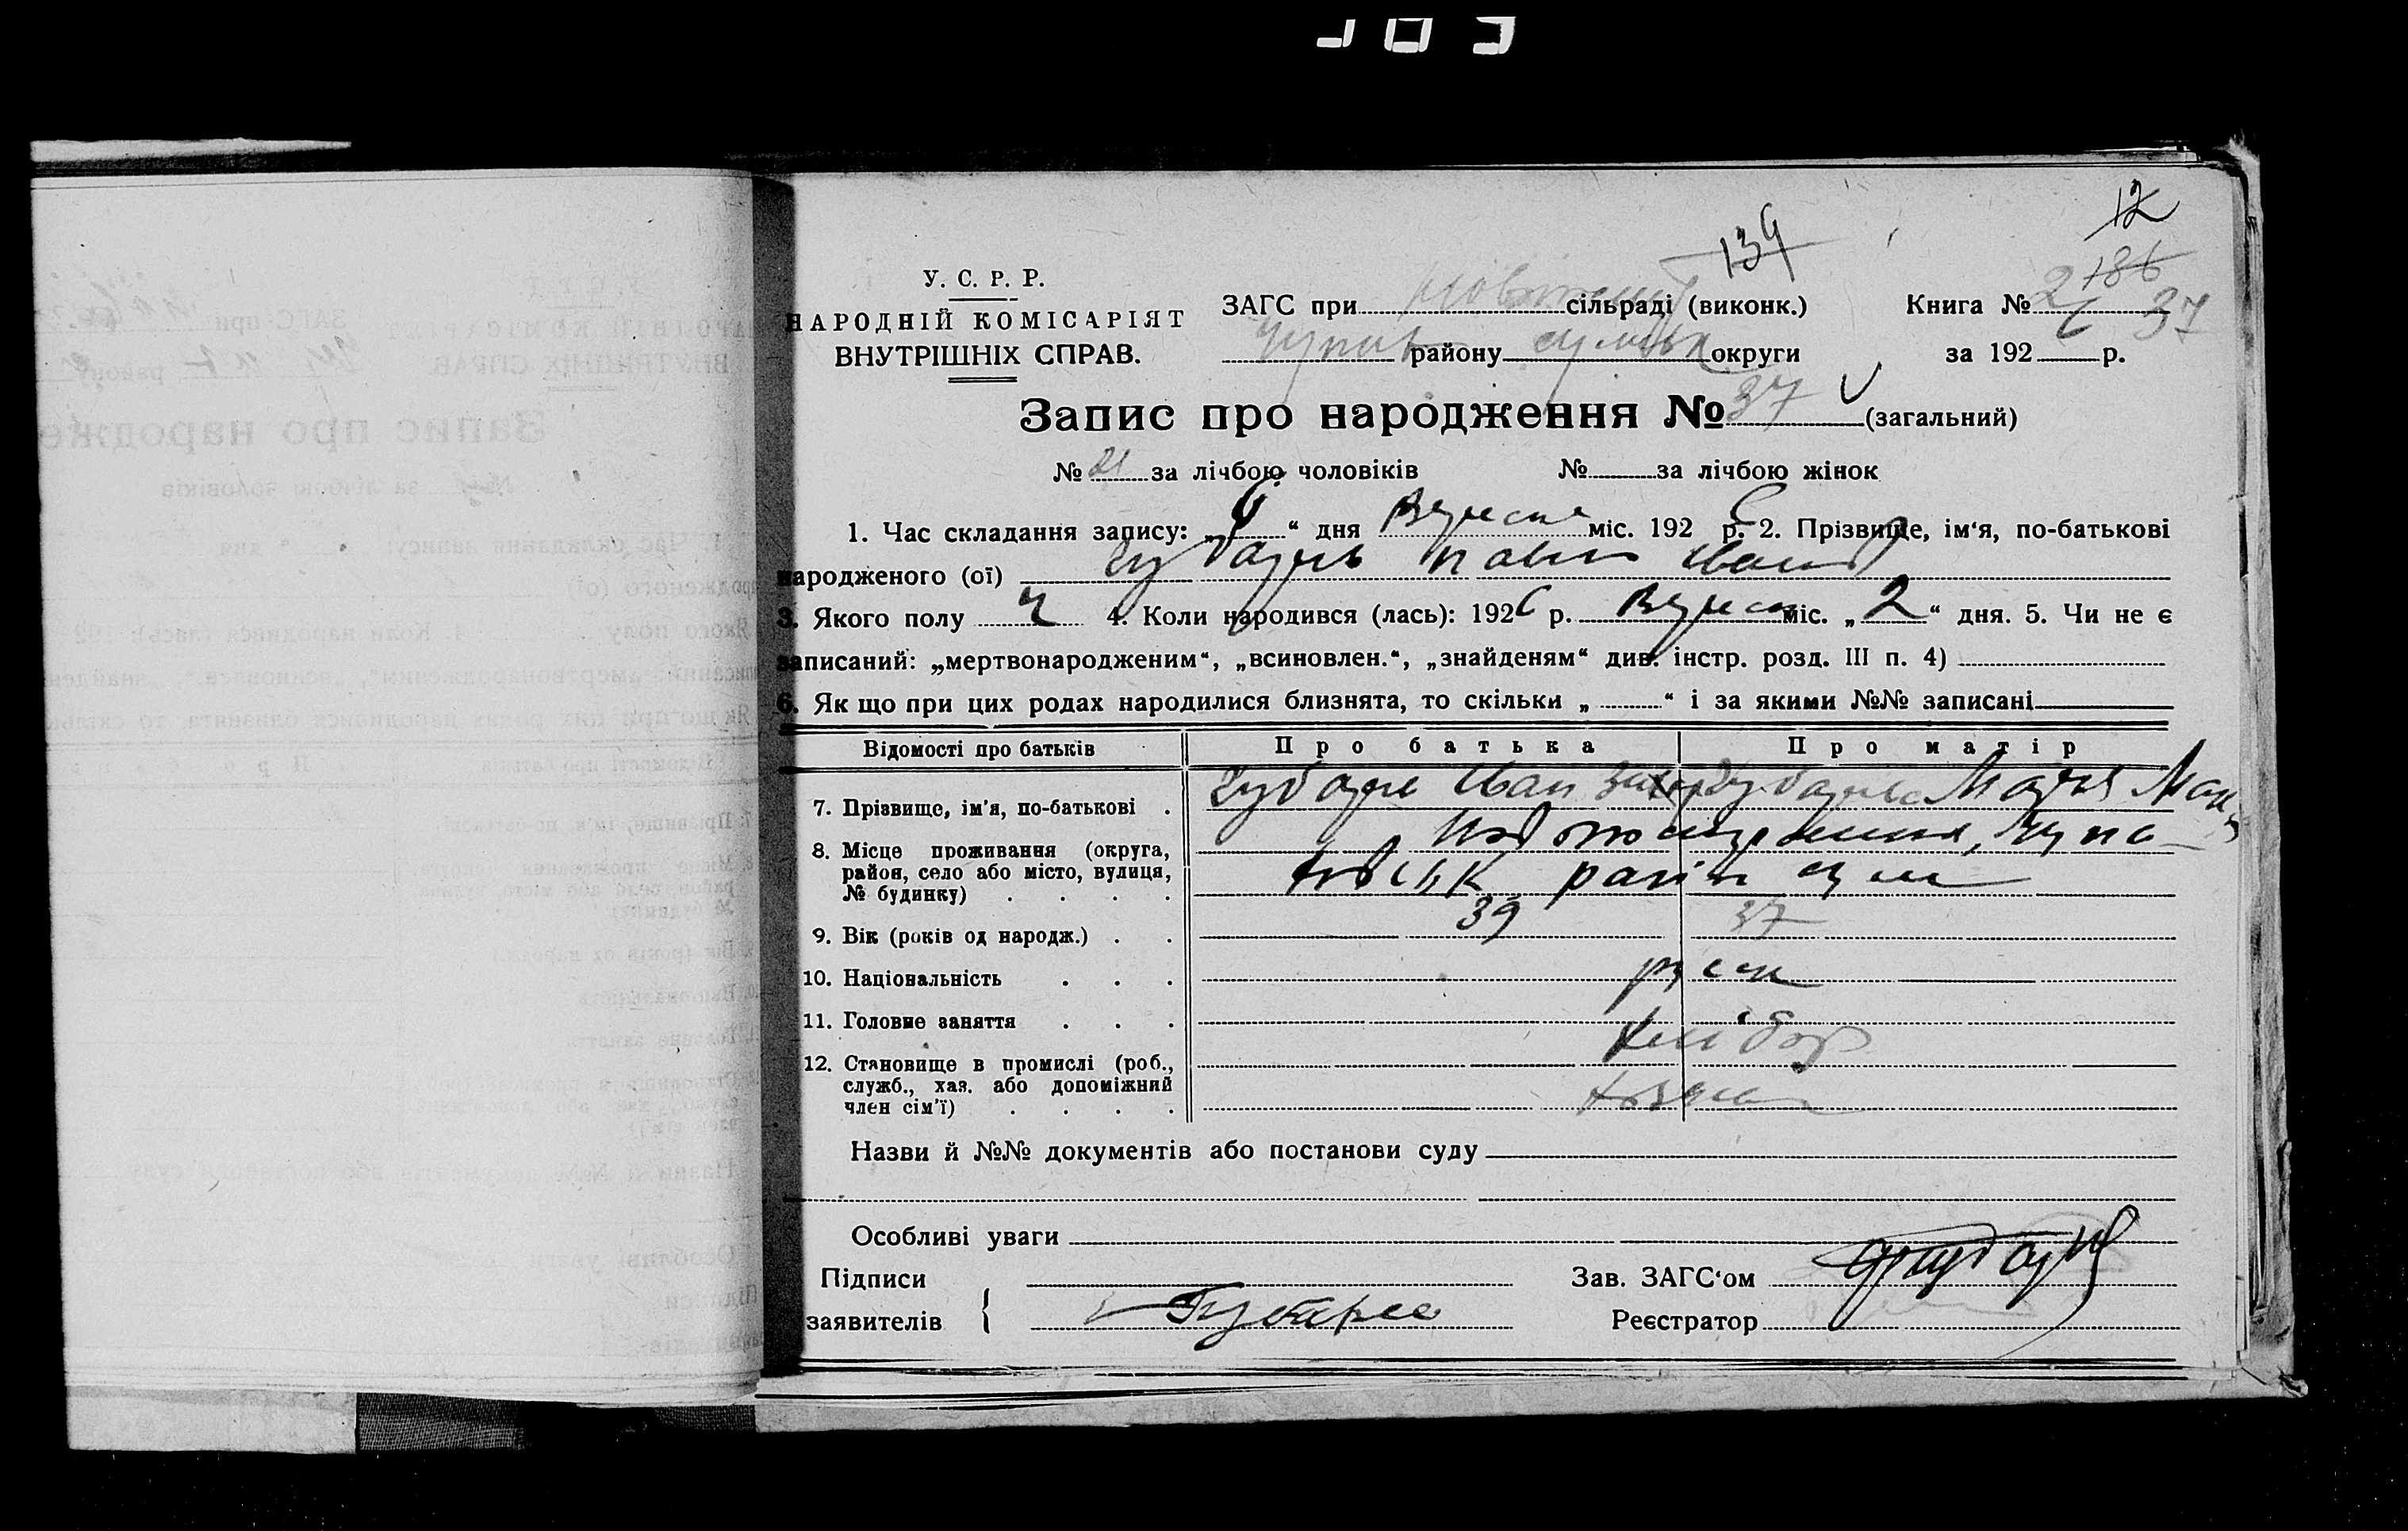 12
139
186
У. С. Р. Р.
НАРОДНІЙ КОМІСАРІЯТ
ВНУТРІШНІХ СПРАВ.
ЗАГС при сільраді (виконк.)
району округи
Книга № 2 37
за 192 6 р.
Запис про народження № 37 (загальний)
№ 21 за лічбою чоловіків № за лічбою жінок
1. Час складання запису: „ 6 “ дня Вересня міс. 192 6 р. 2. Прізвище, ім‘я, по-батькові
народженого (ої) Губарь Иван
3. Якого полу ч 4. Коли народився (лась): 1926 р. Вересня міс. „ 2 “ дня. 5. Чи не є
записаний: „мертвонародженим“, „всиновлен.“, „знайденям“ див. інстр. розд. III п. 4)
6. Як що при цих родах народилися близнята, то скільки „ “ і за якими №№ записані
Відомості про батьків Про батька Про матір
7. Прізвище, ім'я, по-батькові . Губарь Иван Губарь Мария
8. Місце проживання (округа,
район, село або місто, вулиця,
№ будинку) . . . . район
9. Вік (років од народж.) . . 39 37
10. Національність . . . руск
11. Головне заняття . . . хлібор
12. Становище в промислі (роб.,
служб., хаз. або допоміжний
член сім'ї) . . . . хозяин
Назви й №№ документів або постанови суду
Особливі уваги
Підписи
заявителів { Губарь
Зав. ЗАГС‘ом
Реєстратор